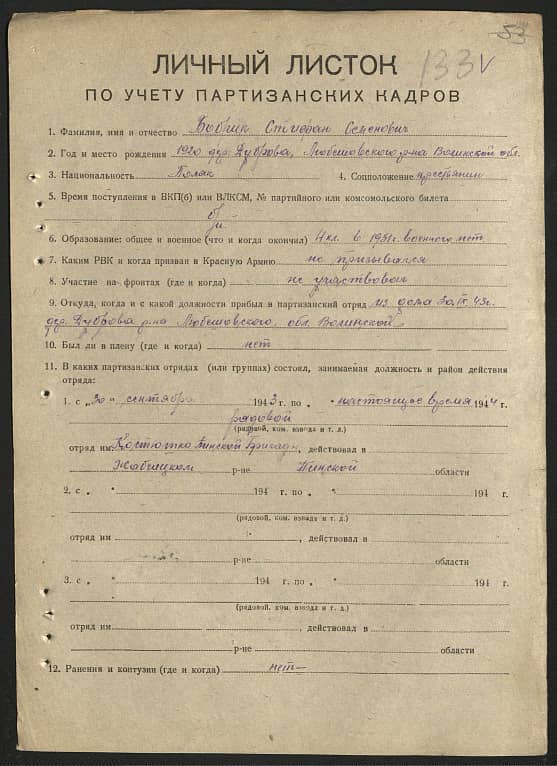 53
133 V
ЛИЧНЫЙ ЛИСТОК
ПО УЧЕТУ ПАРТИЗАНСКИХ КАДРОВ
1. Фамилия, имя и отчество Бобрик Стифан Семенович
2. Год и место рождения 1920 дер. Дуброва, Любешовского р-на Волинской обл.
3. Национальность Поляк 4. Соцположение крестьянин
5. Время поступления в ВКП(б) или ВЛКСМ, № партийного или комсомольского билета
б/п
6. Образование: общее и военное (что и когда окончил) 4 кл. в 1931 г. военного нет
7. Каким РВК и когда призван в Красную Армию не призывался
8. Участие на фронтах (где и когда) не участвовал
9. Откуда, когда и с какой должности прибыл в партизанский отряд из дома 30.IX.43г.
дер. Дуброва р-на Любешовского, обл. Волинской
10. Был ли в плену (где и когда) нет
11. В каких партизанских отрядах (или группах) состоял, занимаемая должность и район действия
отряда:
1. с „30“ сентября 1943 г. по „ настоящее время 1944 г.
рядовой
(рядовой, ком. взвода и т. д.)
отряд им. Костюшко Пинской бригады, действовал в
Жабчицком р-не Пинской области
2. с „ “ 194 г. по „ “ 194 г.
(рядовой, ком. взвода и т. д.)
отряд им , действовал в
р-не области
3. с „ “ 194 г. по „ “ 194 г.
(рядовой, ком. взвода и т. д.)
отряд им , действовал в
р-не области
12. Ранения и контузии (где и когда) нет